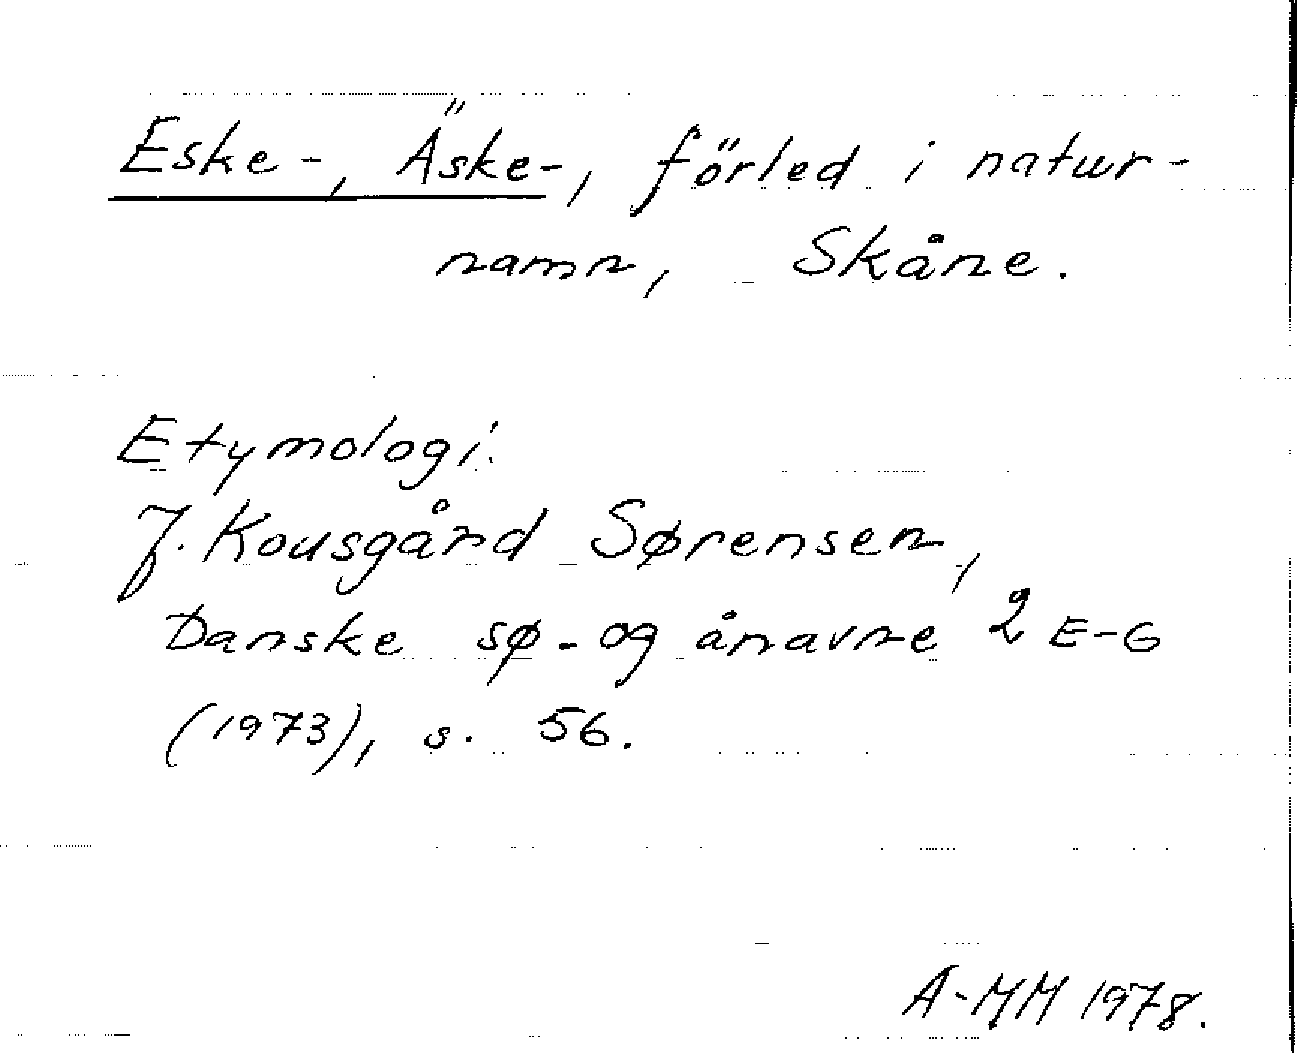 Eske-, Äske-, förled i natur-
namn, Skåne.
Etymologi:
J. Kousgård Sørensen,
Danske sø- og ånavne 2 E-G
(1973), s. 56.
A-MM 1978.